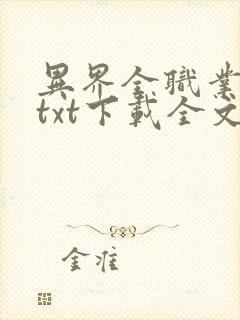 異界全職業
txt下載全文
金准